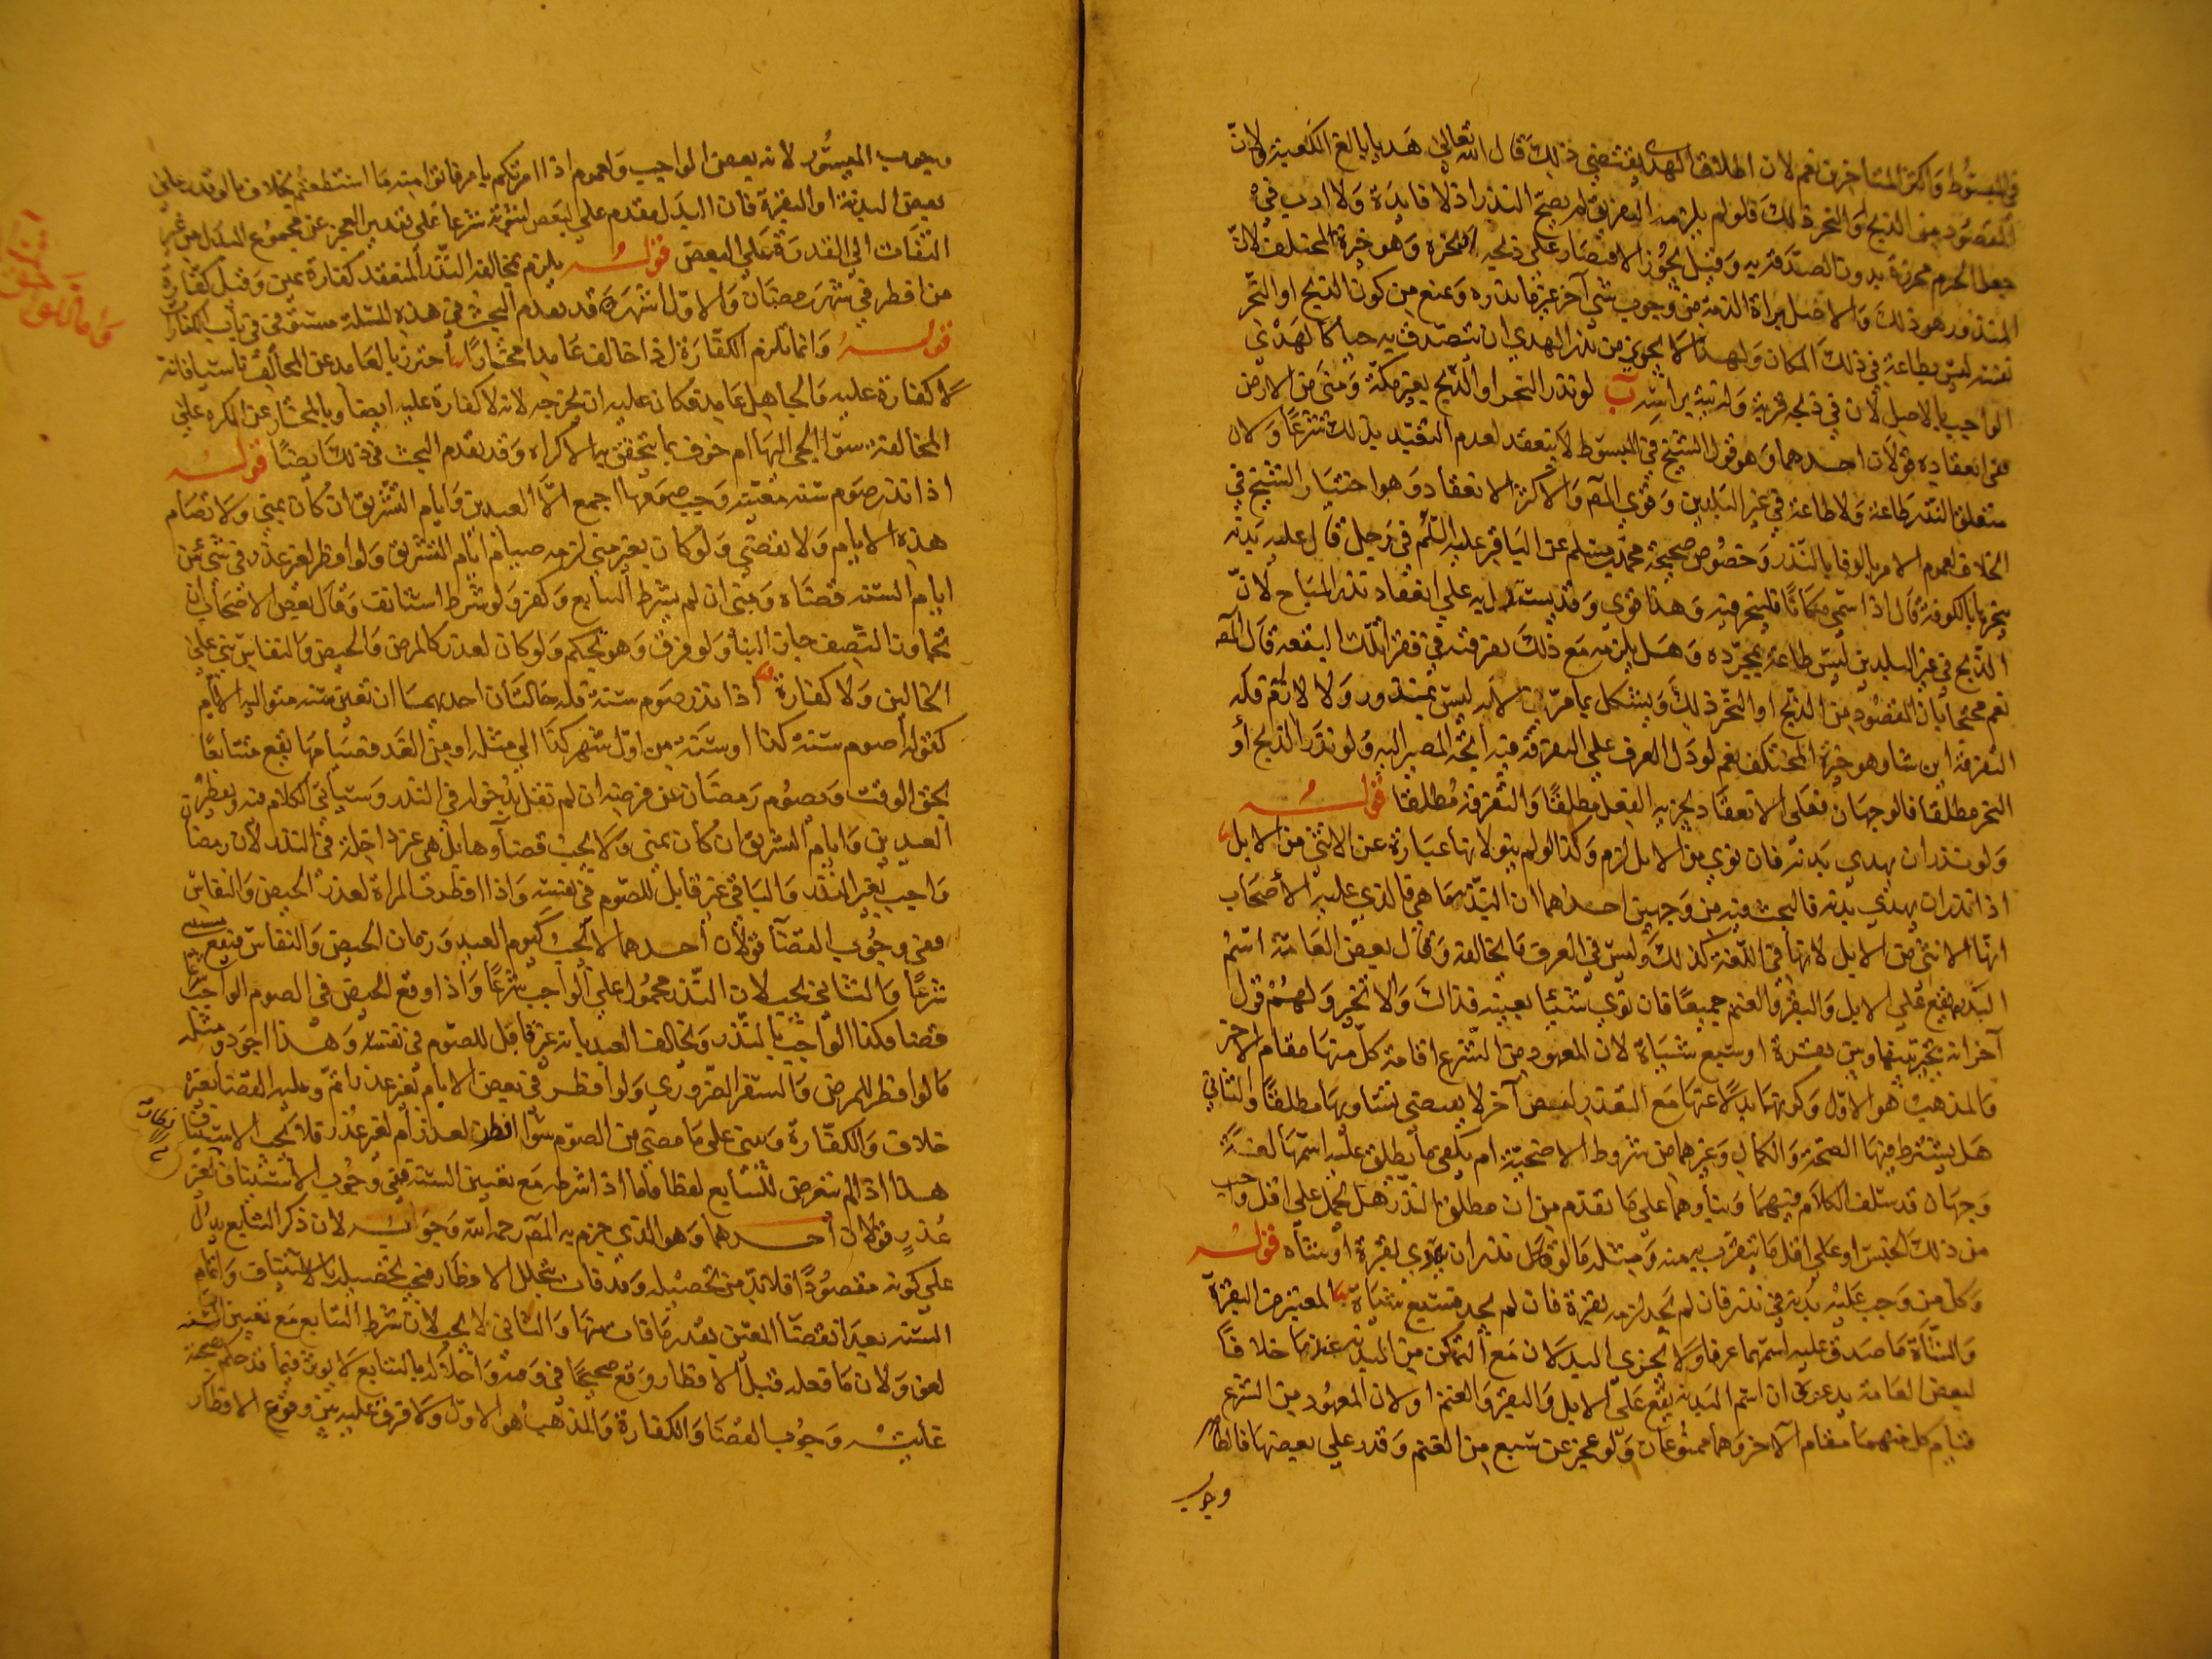 في المبسوط واكثر المتاخرين نعم لان اطلاق الهدي يقتضي ذلك قال الله تعالى هديا بالغ الكعبة ولان
المقصود من الذبح والنحر ذلك فلو لم يلزمه التفريق لم يصح النذر اذ لا فايدة ولا ادب في
جعل الحرم مجزرة بدون الصدقة به وقيل يجوز الاقتصار على ذبحه او نحره وهو خيرة المختلف لان
المنذور هو ذلك والاصل براة الذمة من وجوب شي آخر غير ما نذره ومنع من كون الذبح او النحر
نفسه ليس بطاعة في ذلك المكان ولهذا لا يجوز من نذر الهدي ان يتصدق به حيا كالهدي
الواجب بالاصل لان في ذبحه قربة ولو نذر النحر او الذبح بغير مكة ومنى من الارض
ففي انعقاده قولان احدهما وهو قول الشيخ في المبسوط لا ينعقد لعدم التعبد بذلك شرعا ولان
متعلق النذر طاعة ولا طاعة في غير البلدين وقوي المصـ والاكثر الانعقاد وهو اختيار الشيخ في
الخلاف لعموم الامر بالوفا بالنذر وخصوص صحيحة محمد بن مسلم عن الباقر عليه السلم في رجل قال عليه بدنة
ينحرها بالكوفة قال اذا سمى مكانا فلينحر فيه وهذا قوي وقد يستدل به على انعقاد نذر المباح لان
الذبح في غير البلدين ليس طاعة بمجرده وهل يلزمه مع ذلك تفرقته في فقرا تلك البقعة قال المصـ
نعم محتجا بان المقصود من الذبح او النحر ذلك ويشكل بما مر لانه ليس بمنذور ولا لازم فله
التفرقة اين شا وهو خيرة المختلف نعم لو دل العرف على التفرقة فيه اتجه المصير اليه ولو نذر الذبح او
النحر مطلقا فالوجهان فعلى الانعقاد يجزيه الفعل مطلقا والتفرقة مطلقا قوله
ولو نذر ان يهدي بدنة فان نوى من الابل لزم وكذا لو لم ينو لانها عبارة عن الانثى من الابل
اذا نذر ان يهدي بدنة فالبحث فيه من وجهين احدهما ان البدنة ما هي فالذي عليه الأصحاب
انها الانثى من الابل لانها في اللغة كذلك وليس في العرف ما يخالفه وقال بعض العامة اسم
البدنة يقع على الابل والبقر والغنم جميعا فان نوى شيئا بعينه فذاك والا تخير ولهم قول
آخر انه يتخير بينها وبين بقرة او سبع شياة لان المعهود من الشرع اقامة كل منها مقام الاخر
والمذهب هو الاول وكونها بدلا عنها مع التعذر لنص آخر لا يقتضي تساويها مطلقا والثاني
هل يشترط فيها الصحة والكمال وغيرهما من شروط الاضحية ام يكفي ما يطلق عليه اسمها لغة
وجهان قد سلف الكلام فيهما وبناوهما على ما تقدم من ان مطلق النذر هل يحمل على اقل واجب
من ذلك الجنس او على اقل ما يتقرب به منه ومثله ما لو نذر ان يهدي بقرة او شاة قوله
وكل من وجب عليه بدنة في نذر فان لم يجد لزمه بقرة فان لم يجد فسبع شياة المعتبر من البقرة
والشاة ما صدق عليه اسمهما عرفا ولا يجزي البدل الا مع التمكن من البدنة عندنا خلافا
لبعض العامة بدعوى ان اسم البدنة يقع على الابل والبقر والغنم او لان المعهود من الشرع
قيام كل منهما مقام الآخر وهما ممنوعان ولو عجز عن سبع من الغنم وقدر على بعضها فالظاهر
وجوب
وجوب الميسور لانه بعض الواجب ولعموم اذا امرتكم بامر فاتوا منه ما استطعتم بخلاف ما لو قدر على
بعض البدنة او البقرة فان البدل مقدم على البعض لثبوته شرعا على تقدير العجز عن مجموع المبدل من غير
التفات الى القدرة على البعض قوله يلزم بمخالفة النذر المنعقد كفارة يمين وقيل كفارة
من افطر في شهر رمضان والاول اشهر قد تقدم البحث في هذه المسئلة مستوفى في باب الكفارات
قوله وانما تلزم الكفارة اذا خالف عامدا مختارا احترز بالعامد عن المخالف ناسيا فانه
لا كفارة عليه والجاهل عامد فكان عليه ان يخرجه لانه لا كفارة عليه ايضا وبالمختار عن المكره على
المخالفة سوا الجي اليها ام خوف بما يتحقق به الاكراه وقد تقدم البحث في ذلك ايضا قوله
اذا نذر صوم سنة معينة وجب صومها اجمع الا العيدين وايام التشريق ان كان بمنى ولا تصام
هذه الايام ولا تقضى ولو كان بغير منى لزمه صيام ايام التشريق ولو افطر لغير عذر في شي من
ايام السنة قضاه وبنى ان لم يشرط التتابع وكفر ولو شرط استانف وقال بعض الاصحاب ان
تجاوز النصف جاز البنا ولو فرق وهو تحكم ولو كان لعذر كالمرض والحيض والنفاس بنى على
الحالين ولا كفارة اذا نذر صوم سنة فله حالتان احديهما ان تعين سنة متوالية الايام
كقوله اصوم سنة كذا او سنة من اول شهر كذا الى مثله او من الغد فصيامها يقع متتابعا
بحق الوقت ويصوم رمضان عن فرضه ان لم نقل بدخوله في النذر وسياتي الكلام فيه ويفطر
العيدين وايام التشريق ان كان بمنى ولا يجب قضاوها بل هي غير داخلة في النذر لان رمضان
واجب بغير النذر والباقي غير قابل للصوم في نفسه واذا افطرت المراة لعذر الحيض والنفاس
ففي وجوب القضا قولان احدهما لا يجب كيوم العيد وزمان الحيض والنفاس فيقع مستثنى
شرعا والثاني يجب لان النذر محمول على الواجب شرعا واذا وقع الحيض في الصوم الواجب شرعا
قضا فكذا الواجب بالنذر ويخالف العيد بانه غير قابل للصوم في نفسه وهذا اجود ومثله
ما لو افطر للمرض والسفر الضروري ولو افطر في بعض الايام لغير عذر اثم وعليه القضا بغير
خلاف والكفارة ويبني على ما مضى من الصوم سوا افطر لعذر ام لغير عذر فلا يجب الاستيناف
هذا اذا لم يتعرض للتتابع لفظا فاما اذا اشرطه مع تعيين السنة ففي وجوب الاستيناف لغير
عذر قولان احدهما وهو الذي جزم به المصـ رحمه الله وجوبه لان ذكر التتابع يدل
على كونه مقصودا فلابد من تحصيله وقد فات بتخلل الافطار فيجب تحصيله بالاستيناف واتمام
السنة بعد انقضا المعين بقدر ما فات منها والثاني لا يجب لان شرط التتابع مع تعيين السنة
لغو ولان ما فعله قبل الافطار وقع صحيحا في وقته واخلاله بالتتابع لا يوثر فيما قد حكم بصحته
غايته وجوب القضا والكفارة والمذهب هو الاول ولا فرق عليه بين وقوع الافطار